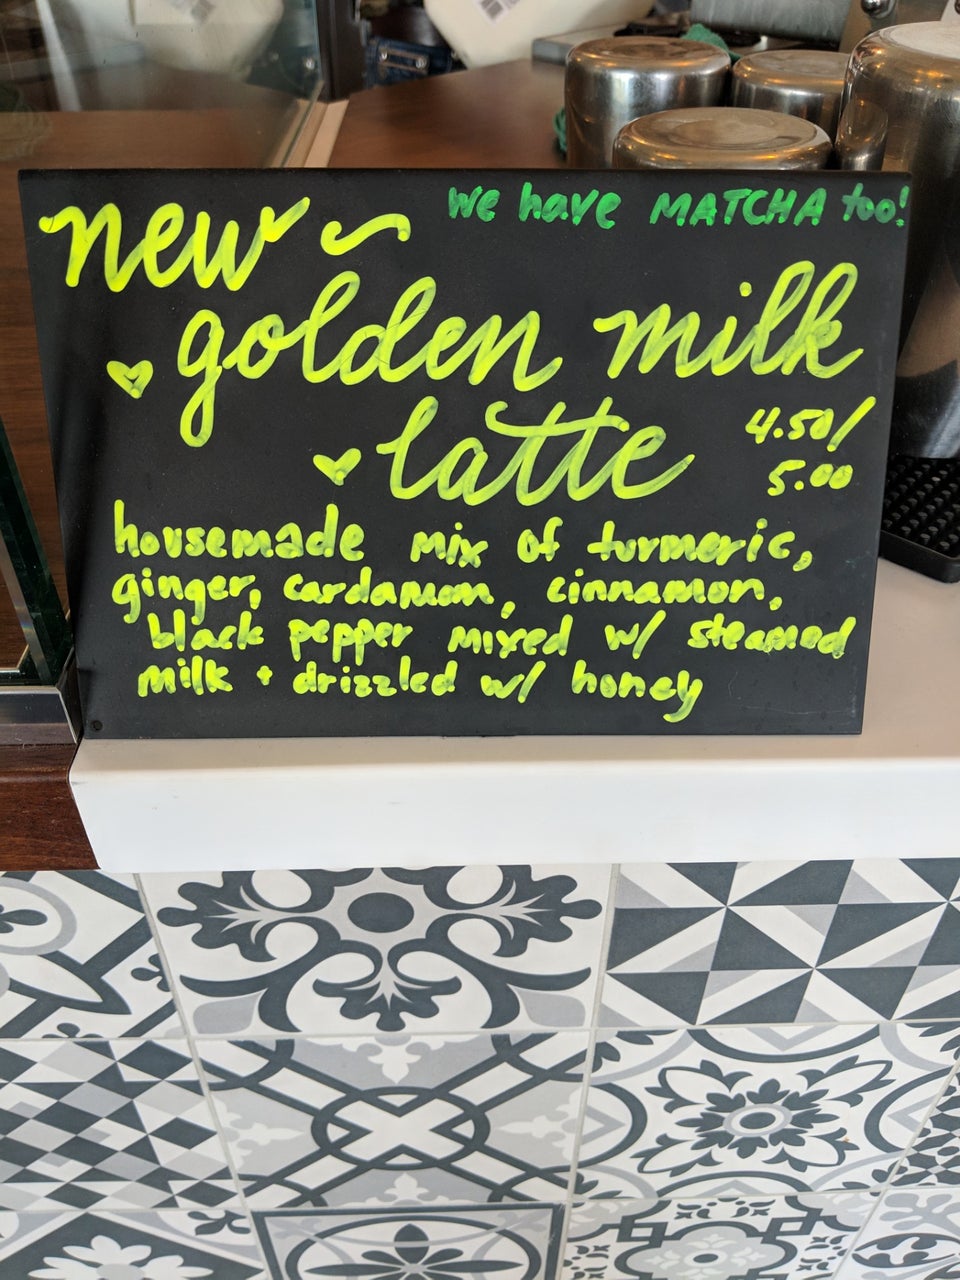 we have MATCHA too!
new ~
golden milk
latte
4.50/
5.00
housemade mix of turmeric,
ginger, cardamom, cinnamon,
black pepper mixed w/ steamed
milk + drizzled w/ honey